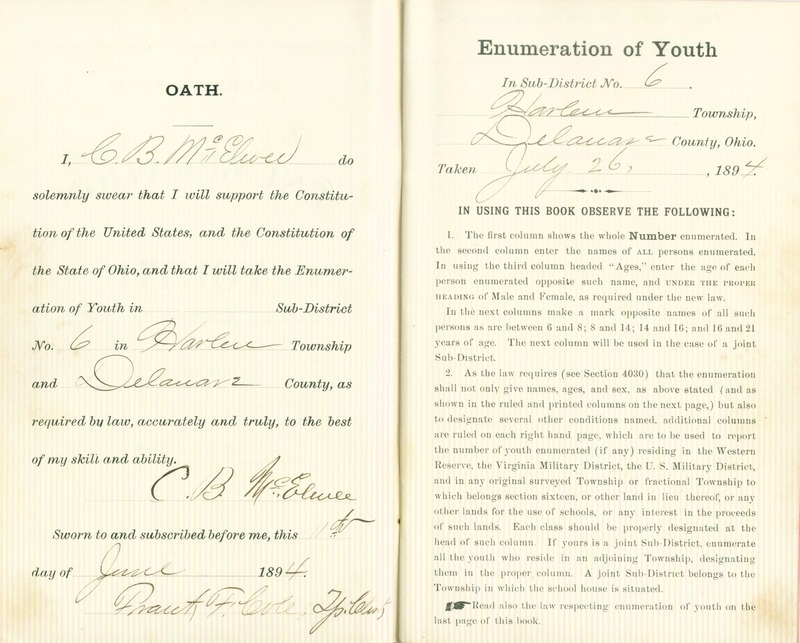 OATH.
I, C. B. McElwee do
solemnly swear that I will support the Constitu-
tion of the United States, and the Constitution of
the State of Ohio, and that I will take the Enumer-
ation of Youth in Sub-District
No. 6 in Harlem Township
and Delaware County, as
required by law, accurately and truly, to the best
of my skill and ability.
C. B. McElwee
Sworn to and subscribed before me, this 1st
day of June 1894.
Frank F. Cole, Tp. Clerk
Enumeration of Youth
In Sub-District No. 6.
Harlem Township,
Delaware County, Ohio.
Taken July 26, , 1894.
IN USING THIS BOOK OBSERVE THE FOLLOWING:
1. The first column shows the whole Number enumerated. In
the second column enter the names of ALL persons enumerated.
In using the third column headed "Ages," enter the age of each
person enumerated opposite such name, and UNDER THE PROPER
HEADING of Male and Female, as required under the new law.
In the next columns make a mark opposite names of all such
persons as are between 6 and 8; 8 and 14; 14 and 16; and 16 and 21
years of age. The next column will be used in the case of a joint
Sub-District.
2. As the law requires (see Section 4030) that the enumeration
shall not only give names, ages, and sex, as above stated (and as
shown in the ruled and printed columns on the next page,) but also
to designate several other conditions named, additional columns
are ruled on each right hand page, which are to be used to report
the number of youth enumerated (if any) residing in the Western
Reserve, the Virginia Military District, the U. S. Military District,
and in any original surveyed Township or fractional Township to
which belongs section sixteen, or other land in lieu thereof, or any
other lands for the use of schools, or any interest in the proceeds
of such lands. Each class should be properly designated at the
head of such column. If yours is a joint Sub-District, enumerate
all the youth who reside in an adjoining Township, designating
them in the proper column. A joint Sub-District belongs to the
Township in which the school house is situated.
☛Read also the law respecting enumeration of youth on the
last page of this book.